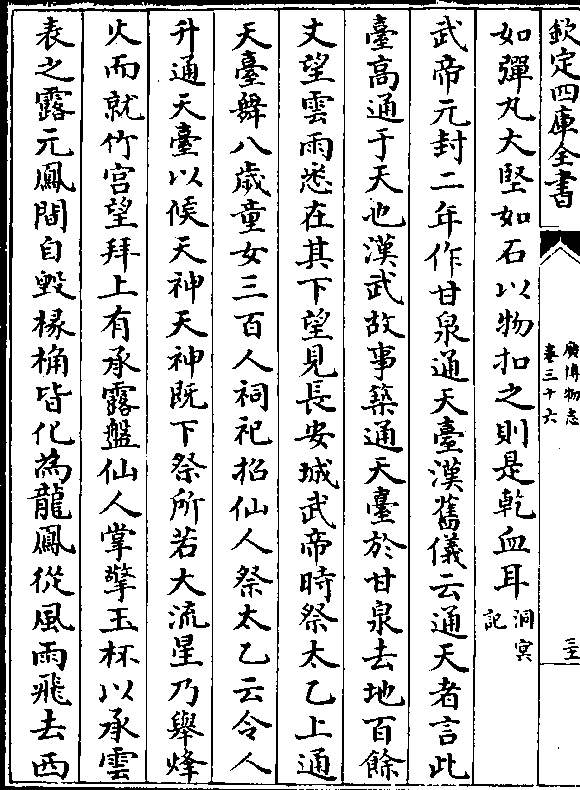 欽定四庫全書
廣博物志
卷三十六
三五
如彈丸大堅如石以物扣之則是乾血耳洞冥
記
武帝元封二年作甘泉通天臺漢舊儀云通天者言此
臺高通于天也漢武故事築通天臺於甘泉去地百餘
丈望雲雨悉在其下望見長安城武帝時祭太乙上通
天臺舞八歲童女三百人祠祀招仙人祭太乙云令人
升通天臺以候天神天神既下祭所若大流星乃舉烽
火而就竹宫望拜上有承露盤仙人掌擎玉杯以承雲
表之露元鳳間自毀椽桷皆化為龍鳳從風雨飛去西